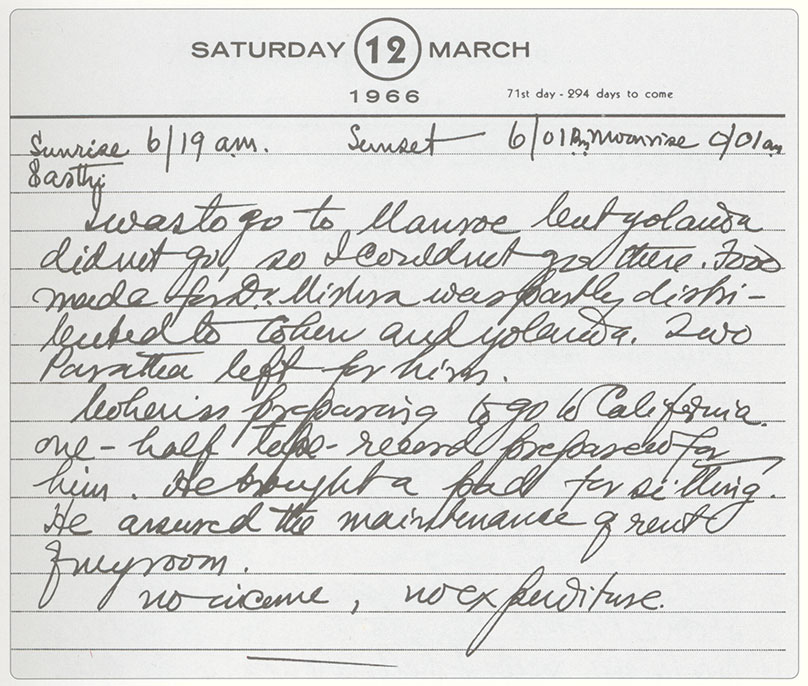 SATURDAY 12 MARCH
1966 71st day - 294 days to come
Sunrise 6/19 a.m. Sunset 6/01 Pm, Moonrise 0/01 am
Sasthi
I was to go to Monroe but yolanda
did not go, so I could not go there. Food
made for Dr. Mishra was partly distri-
buted to Cohen and yolanda. Two
Paratta left for him.
Cohen is preparing to go to California.
one-half tape-record prepared for
him. He brought a pad for sitting.
He assured the maintenance of rent
of my room.
no income, no expenditure.